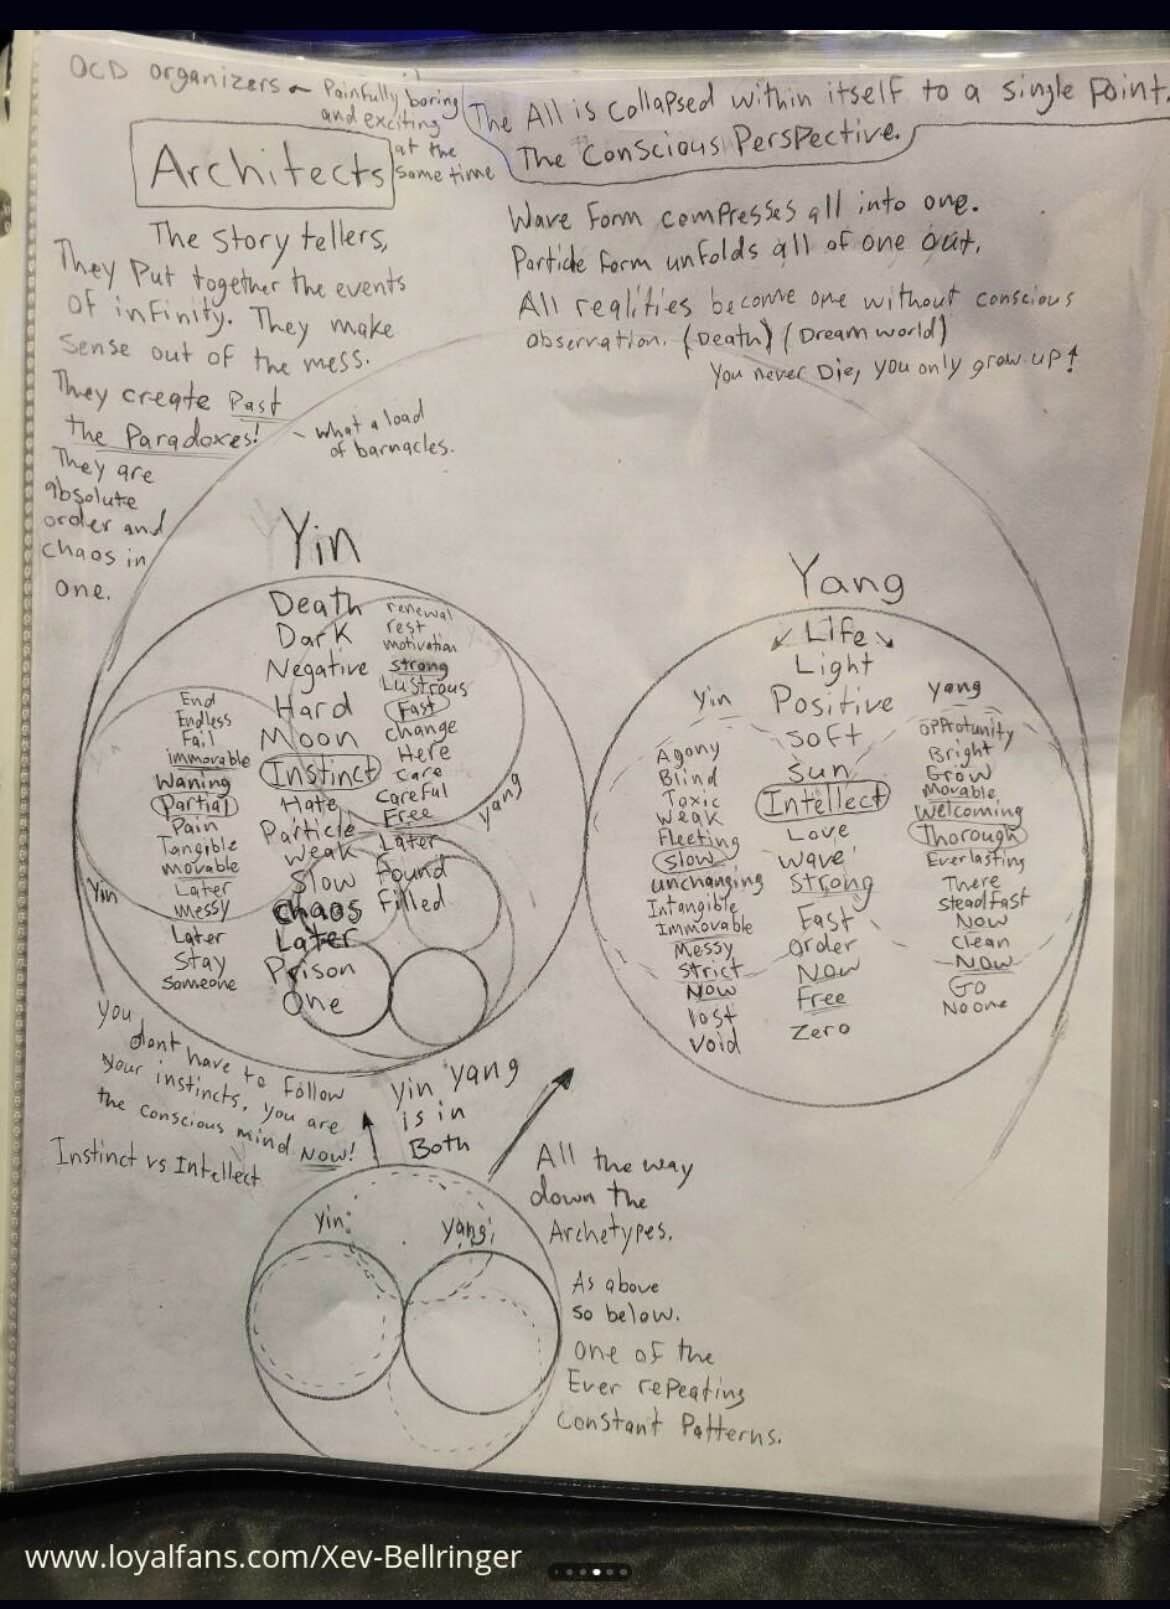 OCD organizers ~ Painfully boring
and exciting
at the
same time
Architects
The All is collapsed within itself to a single Point.
The Conscious Perspective.
The story tellers,
They Put together the events
of infinity. They make
sense out of the mess.
They create Past
the Paradoxes!
~ what a load
of barnacles.
They are
absolute
order and
chaos in
one.
Wave Form compresses all into one.
Particle form unfolds all of one out.
All realities become one without conscious
observation. (Death) (Dream world)
You never Die, you only grow up!
Yin
Death
Dark
Negative
Hard
Moon
Instinct
Hate
Particle
Weak
Slow
Chaos
Later
Prison
One
renewal
rest
motivation
strong
Lustrous
Fast
change
Here
care
careful
Free
Later
Found
Filled
yang
End
Endless
Fail
immovable
Waning
Partial
Pain
Tangible
movable
Later
messy
Later
Stay
Someone
Yin
Yang
Life
Light
Positive
Soft
Sun
Intellect
Love
Wave
Strong
Fast
Order
Now
Free
Zero
Yin
Agony
Blind
Toxic
Weak
Fleeting
Slow
unchanging
Intangible
Immovable
Messy
Strict
Now
Lost
Void
Yang
opprotunity
Bright
Grow
Movable
Welcoming
Thorough
Everlasting
There
Steadfast
Now
Clean
Now
Go
No one
You
dont have to follow
your instincts, you are
the conscious mind Now!
Instinct vs Intellect
Yin Yang
is in
Both
All the way
down the
Archetypes.
yin
yang
As above
so below.
one of the
Ever repeating
Constant Patterns.
www.loyalfans.com/Xev-Bellringer